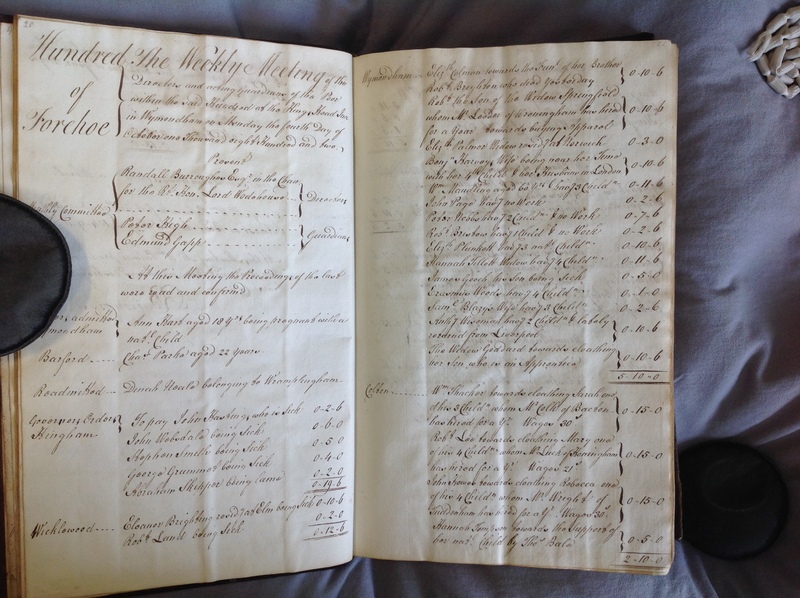 20
Hundred
of
Forehoe
The Weekly Meeting of the
Directors and acting Guardians of the Poor
within the said Hundred at the Kings Head Inn
in Wymondham on Monday the fourth Day of
October one Thousand eight Hundred and two
Present
Randall Burroughes Esqr. in the Chair
for the Rt. Hon. Lord Wodehouse
Directors
Weekly Committee
Peter High
Edmund Gapp
Guardians
At this Meeting the Proceedings of the last
were read and confirmed
admitted
Wymondham
Ann Hart aged 18 yrs. being pregnant with a
natl. Child
Barford
Chas. Parke aged 22 Years
Readmitted
Dinah Heald belonging to Wramplingham
Governors Orders
Hingham
To pay John Hasting who is Sick 0-2-6
John being Sick 0-6-0
Stephen Smith being Sick 0-5-0
George Grummet being Sick 0-4-0
Abraham Skipper being lame 0-2-0
0-19-6
Wicklewood
Eleanor Brighting resdg. at Elm being Sick 0-10-6
Robt. being Sick 0-2-0
0-12-6
Wymondham
Elizth. Colman towards the Funl. of her Brother
Robt. Brighton who died Yesterday
0-10-6
Robt. the Son of the Widow Springfield
whom Mr. of has hired
for a Year towards buying Apparel
0-10-6
Elizth. Palmer Widow resdg. at Norwich 0-3-0
Benjn. Harvey's Wife being near her Time
with her 4th. Child & her Husband in London
0-10-6
Wm. aged 60 Yrs. havg. 3 Childn. 0-11-6
John Page havg. no Work 0-2-6
Peter Webb havg. 2 Childn. & no Work 0-7-6
Robt. Bristow havg. 1 Child & no Work 0-2-6
Elizth. Plunkett havg. 3 natl. Childn. 0-10-6
Hannah Widow havg. 4 Childn. 0-11-6
James Gooch his Son being Sick 0-5-0
Erasmus Woods havg. 4 Childn. 0-1-0
Saml. Wife havg. Childn. 0-2-6
Anthy. Wiseman havg. 2 Childn. & lately
retired from Liverpool
0-10-6
The Widow Goddard towards cloathing
her Son who is an Apprentice
0-10-6
5-10-0
Colten
Wm. Thacker towards cloathing Sarah one
of his 3 Childn. whom Mr. of
has hired for a Yr. Wages 30s.
0-15-0
Robt. Lee towards cloathing Mary one
of his 4 Childn. whom Mr. of
has hired for a Yr. Wages 21s.
0-15-0
John towards cloathing Rebecca one
of his 4 Childn. whom Mr. Wright of
Tuddenham has hired for a Yr. Wages 30s.
0-15-0
Hannah towards the Support of
her natl. Child by Thos. Bale
0-5-0
2-10-0